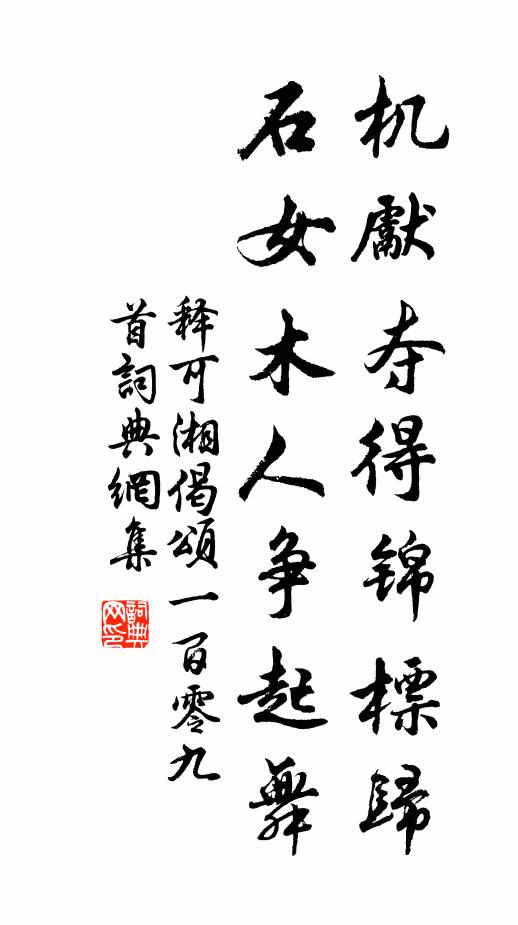 机獻夺得锦標歸
石女木人争起舞
释可湘偈頌一百零九
首詞典網集
詞典网印